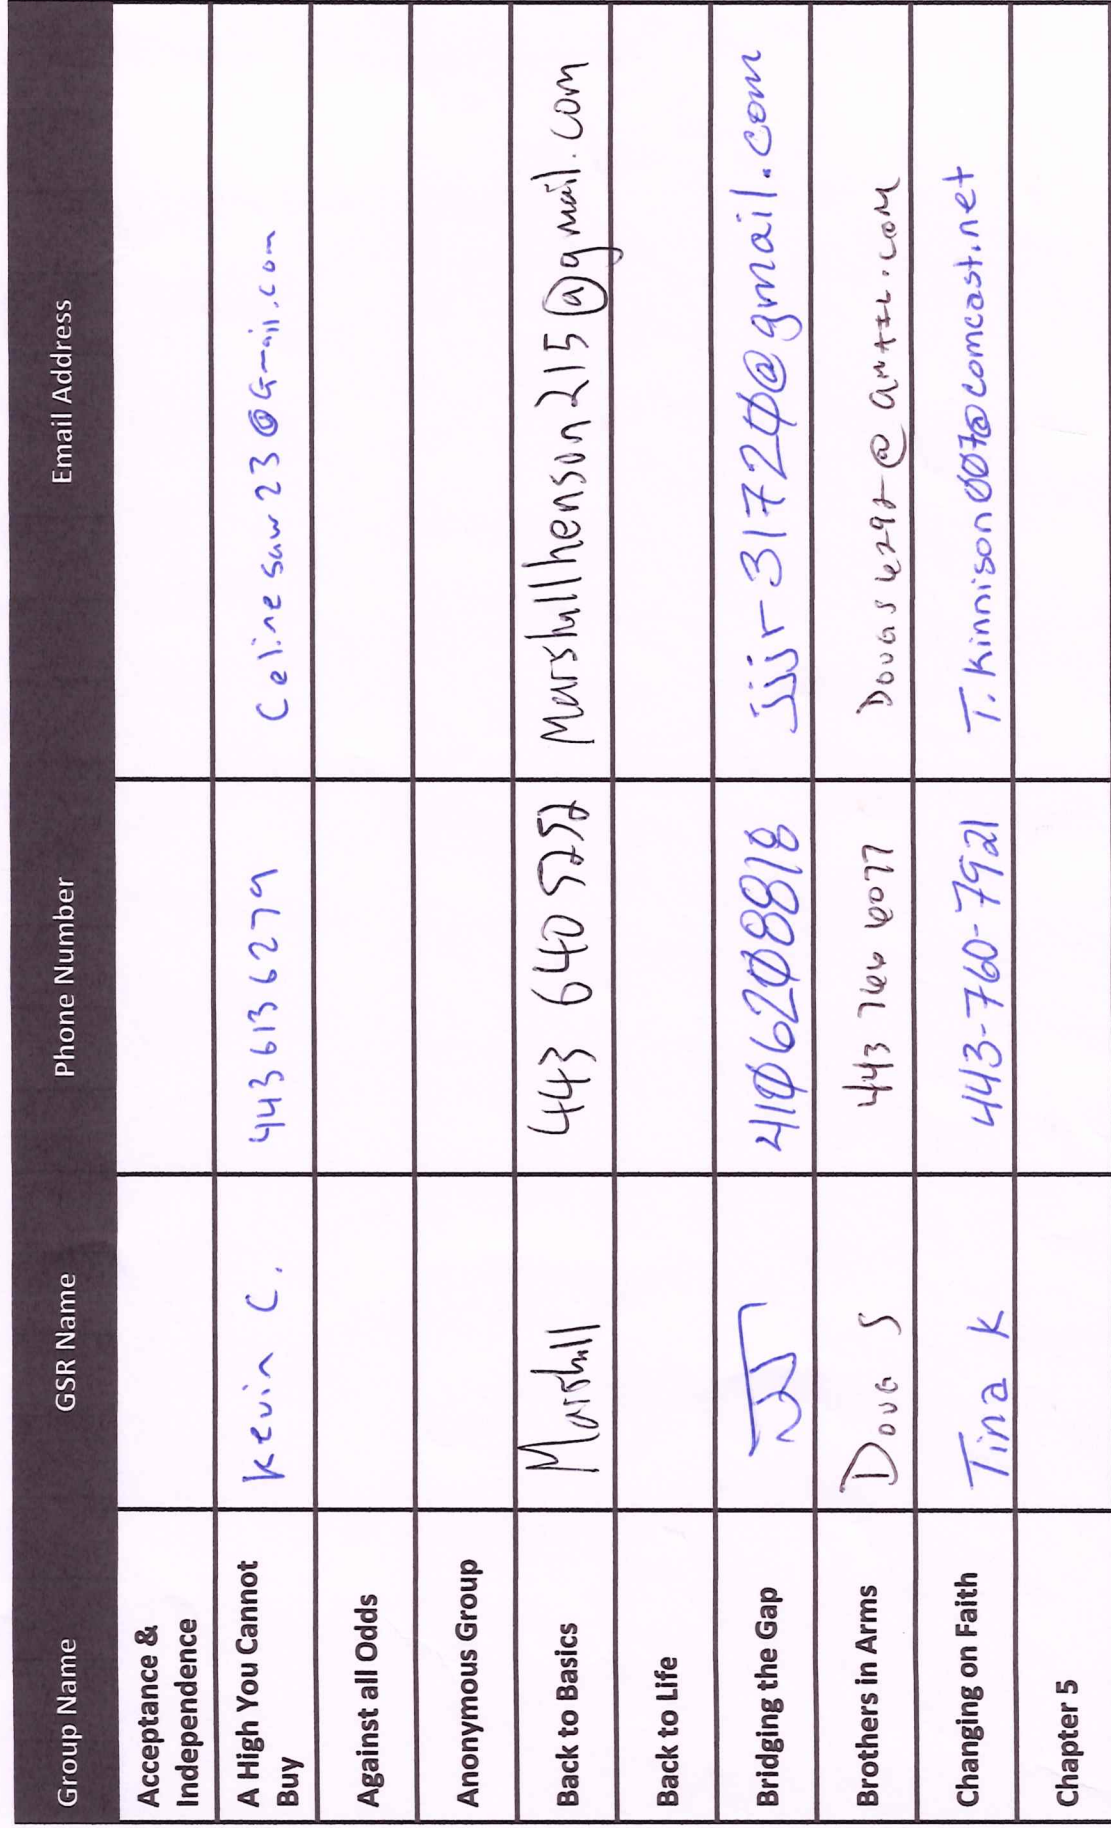 Group Name GSR Name Phone Number Email Address
Acceptance &
Independence
A High You Cannot
Buy
Kevin C. 443 613 6279 Celinesaw23@Gmail.com
Against all Odds
Anonymous Group
Back to Basics Marshall 443 640 5252 Marshallhenson215@gmail.com
Back to Life
Bridging the Gap JJ 4106208818 jjjr-31720@gmail.com
Brothers in Arms Doug S 443 766 6077
Changing on Faith Tina K 443-760-7921 T.Kinnison007@comcast.net
Chapter 5